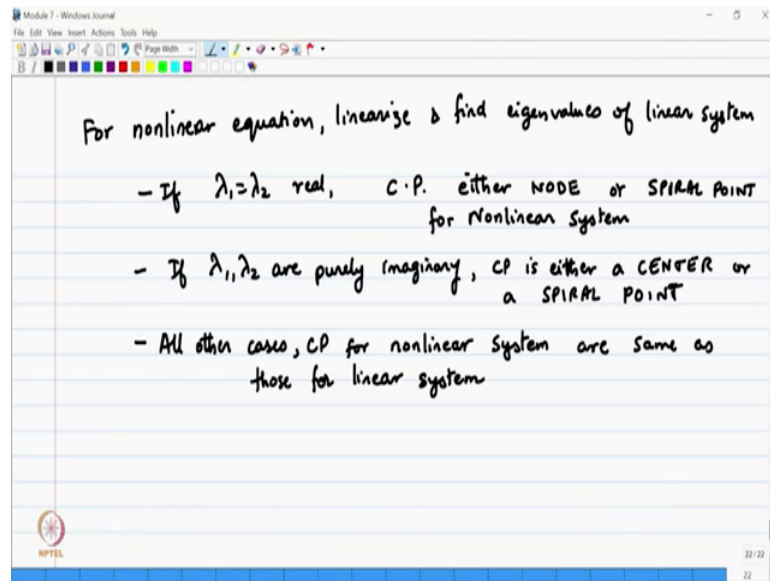 Module 7 - Windows Journal
File Edit View Insert Actions Tools Help
Page Width
B I
For nonlinear equation, linearize & find eigenvalues of linear system
- If λ₁=λ₂ real, C.P. either NODE or SPIRAL POINT
for Nonlinear System
- If λ₁,λ₂ are purely imaginary, CP is either a CENTER or
a SPIRAL POINT
- All other cases, CP for nonlinear system are same as
those for linear system
NPTEL
22/22
22